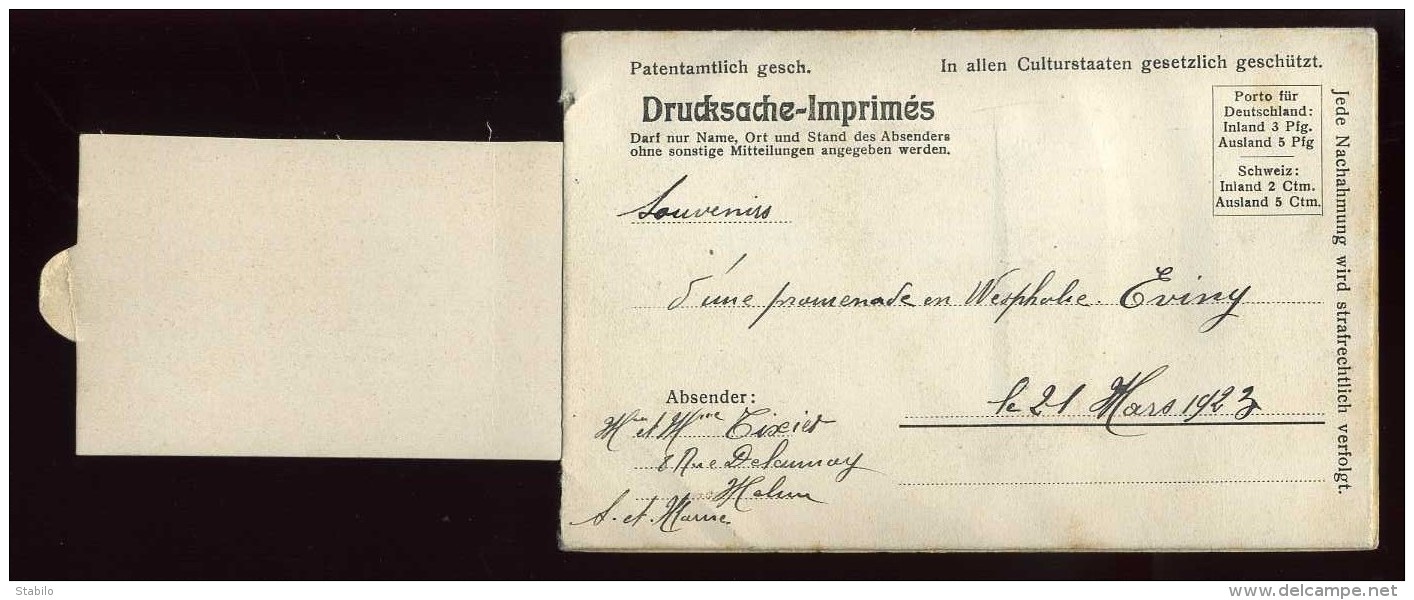 Patentamtlich gesch.
In allen Culturstaaten gesetzlich geschützt.
Drucksache-Imprimés
Darf nur Name, Ort und Stand des Absenders
ohne sonstige Mitteilungen angegeben werden.
Porto für
Deutschland:
Inland 3 Pfg.
Ausland 5 Pfg
Schweiz:
Inland 2 Ctm.
Ausland 5 Ctm.
Jede Nachahmung wird strafrechtlich verfolgt.
Souvenirs
d'une promenade en Wesphalie. Eviny
le 21 Mars 1923
Absender:
et Mme Tixier
8 Rue Delaunay
Melun
S. et Marne
Stabilo
www.delcampe.net